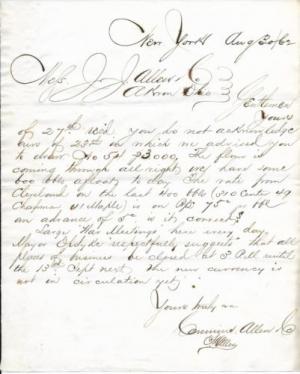 New York Aug 30/62
Mess J. J. Allen & Co
Akron Ohio
Gentlemen
Yours
of 27th recd, you do not acknowledge
ours of 25th in which we advised you
to draw No 54 $3000, The flour is
coming through all right, we have some
bbls afloat to day. The rate from
Cleveland on the last 400 bbls (310 49
Chapman, 41 Maple) is on 75c pr bbl
an advance of 5c is it correct?
Large War Meetings here every day
Mayor Opdyke respectfully suggests that all
places of business be closed at 3 P.M. until
the 15th Sept next. The new currency is
not in circulation yet
Yours truly
Allen & Co